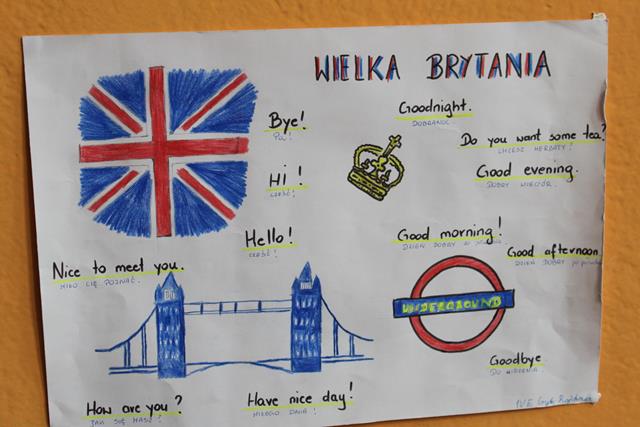 WIELKA BRYTANIA
Goodnight.
DOBRANOC
Bye!
PA!
Do you want some tea?
CHCESZ HERBATY?
Hi!
CZEŚĆ!
Good evening.
DOBRY WIECZÓR.
Hello!
CZEŚĆ!
Good morning!
DZIEŃ DOBRY
Good afternoon
DZIEŃ DOBRY
Nice to meet you.
MIŁO CIĘ POZNAĆ.
UNDERGROUND
Goodbye.
DO WIDZENIA.
How are you?
JAK SIĘ MASZ?
Have nice day!
MIŁEGO DNIA!